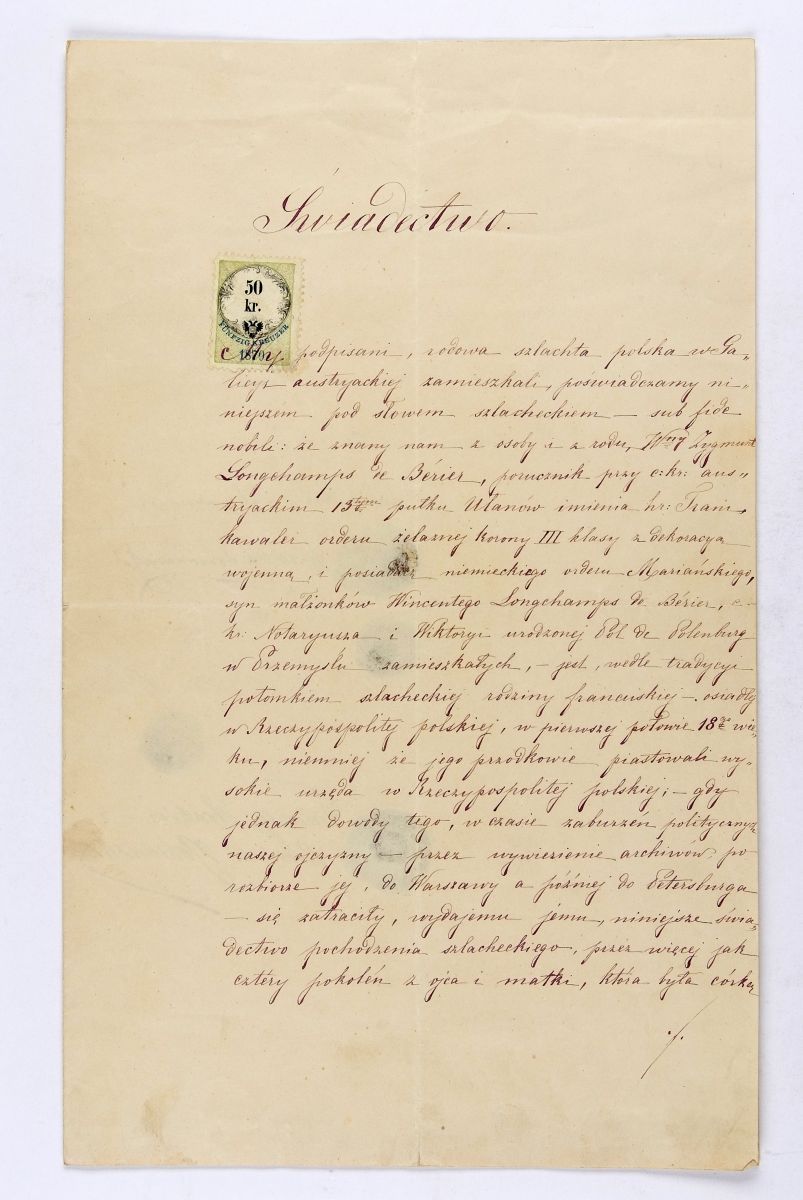 Świadectwo.
50
kr.
FÜNFZIG KREUZER
1879
My podpisani, rodowa szlachta polska w Ga„
licyi austryackiej zamieszkali, poświadczamy ni„
niejszém pod słowem szlacheckiem — sub fide
nobili: że znany nam z osoby i z rodu, Wny Zygmunt
Longchamps de Bérier, porucznik przy c: kr: aus„
tryackim 13tym pułku Ułanów imienia hr: Trani,
kawaler orderu żelaznej Korony III klasy z dekoracyą
wojenną, i posiadacz niemieckiego orderu Maryańskiego,
syn małżonków Wincentego Longchamps de Bérier, c.
kr: Notaryusza i Wiktoryi urodzonej Pol de Polenburg
w Przemyślu zamieszkałych, — jest, wedle tradycyi
potomkiem szlacheckiej rodziny francuskiej — osiadłej
w Rzeczypospolitej polskiej, w pierwszej połowie 18go wie„
ku, niemniej że jego przodkowie piastowali wy„
sokie urzęda w Rzeczypospolitej polskiej; — gdy
jednak dowody tego, w czasie zaburzeń politycznych
naszej ojczyzny — przez wywiezienie archiwów po
rozbiorze jej, do Warszawy a później do Petersburga
— się zatraciły, wydajemy jemu, niniejsze świa„
dectwo pochodzenia szlacheckiego, przez więcej jak
cztéry pokoleń z ojca i matki, która była córką
./.